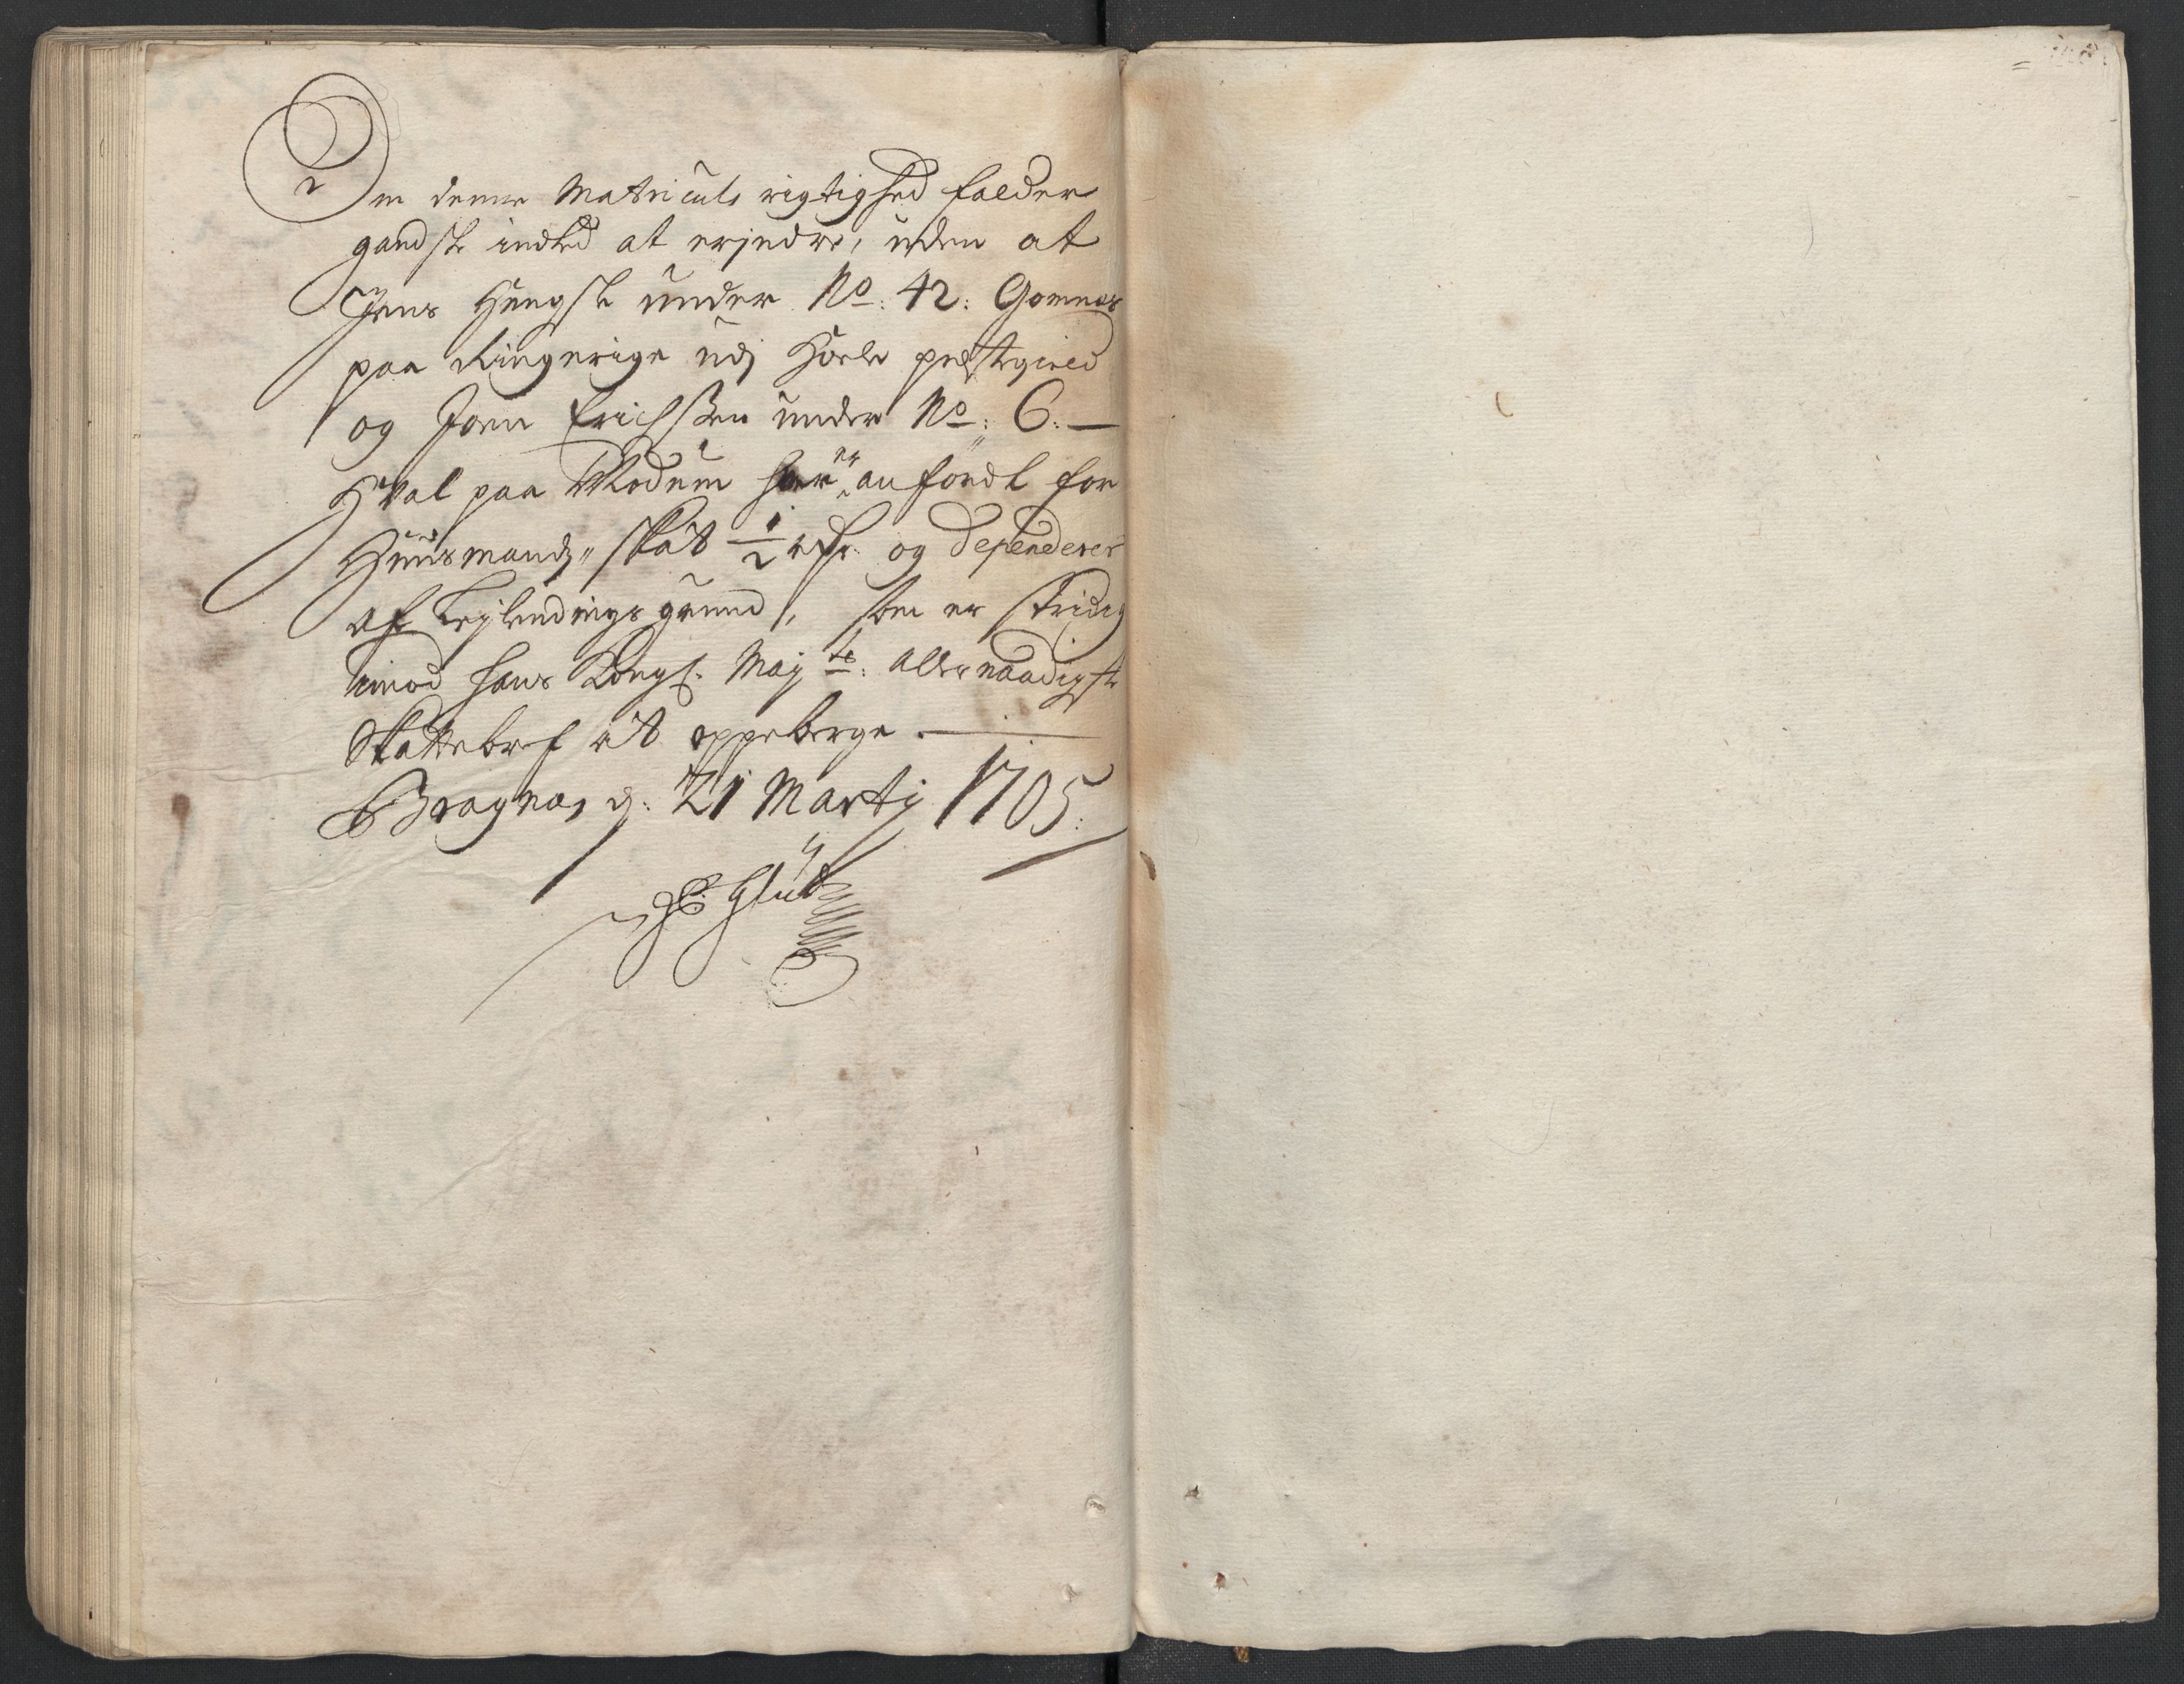 Om denne Matriculs rigtighed falder
gandske indted at erjndre, uden at
Jens Hengsle under No: 42: Gomnes
paa Ringerige udj Hoele prestegield
og Joen Erichssen under No: 6:
Hval paa Modum er anfördt for
Huusmands skat 1/2 rdr og dependerer
af Leylendings grund, som er stridig
imod hans Kongl: Mayts: allernaadigste
Skattebref at oppeberge.
Bragnæs d: 21 Martij 1705:
Glud